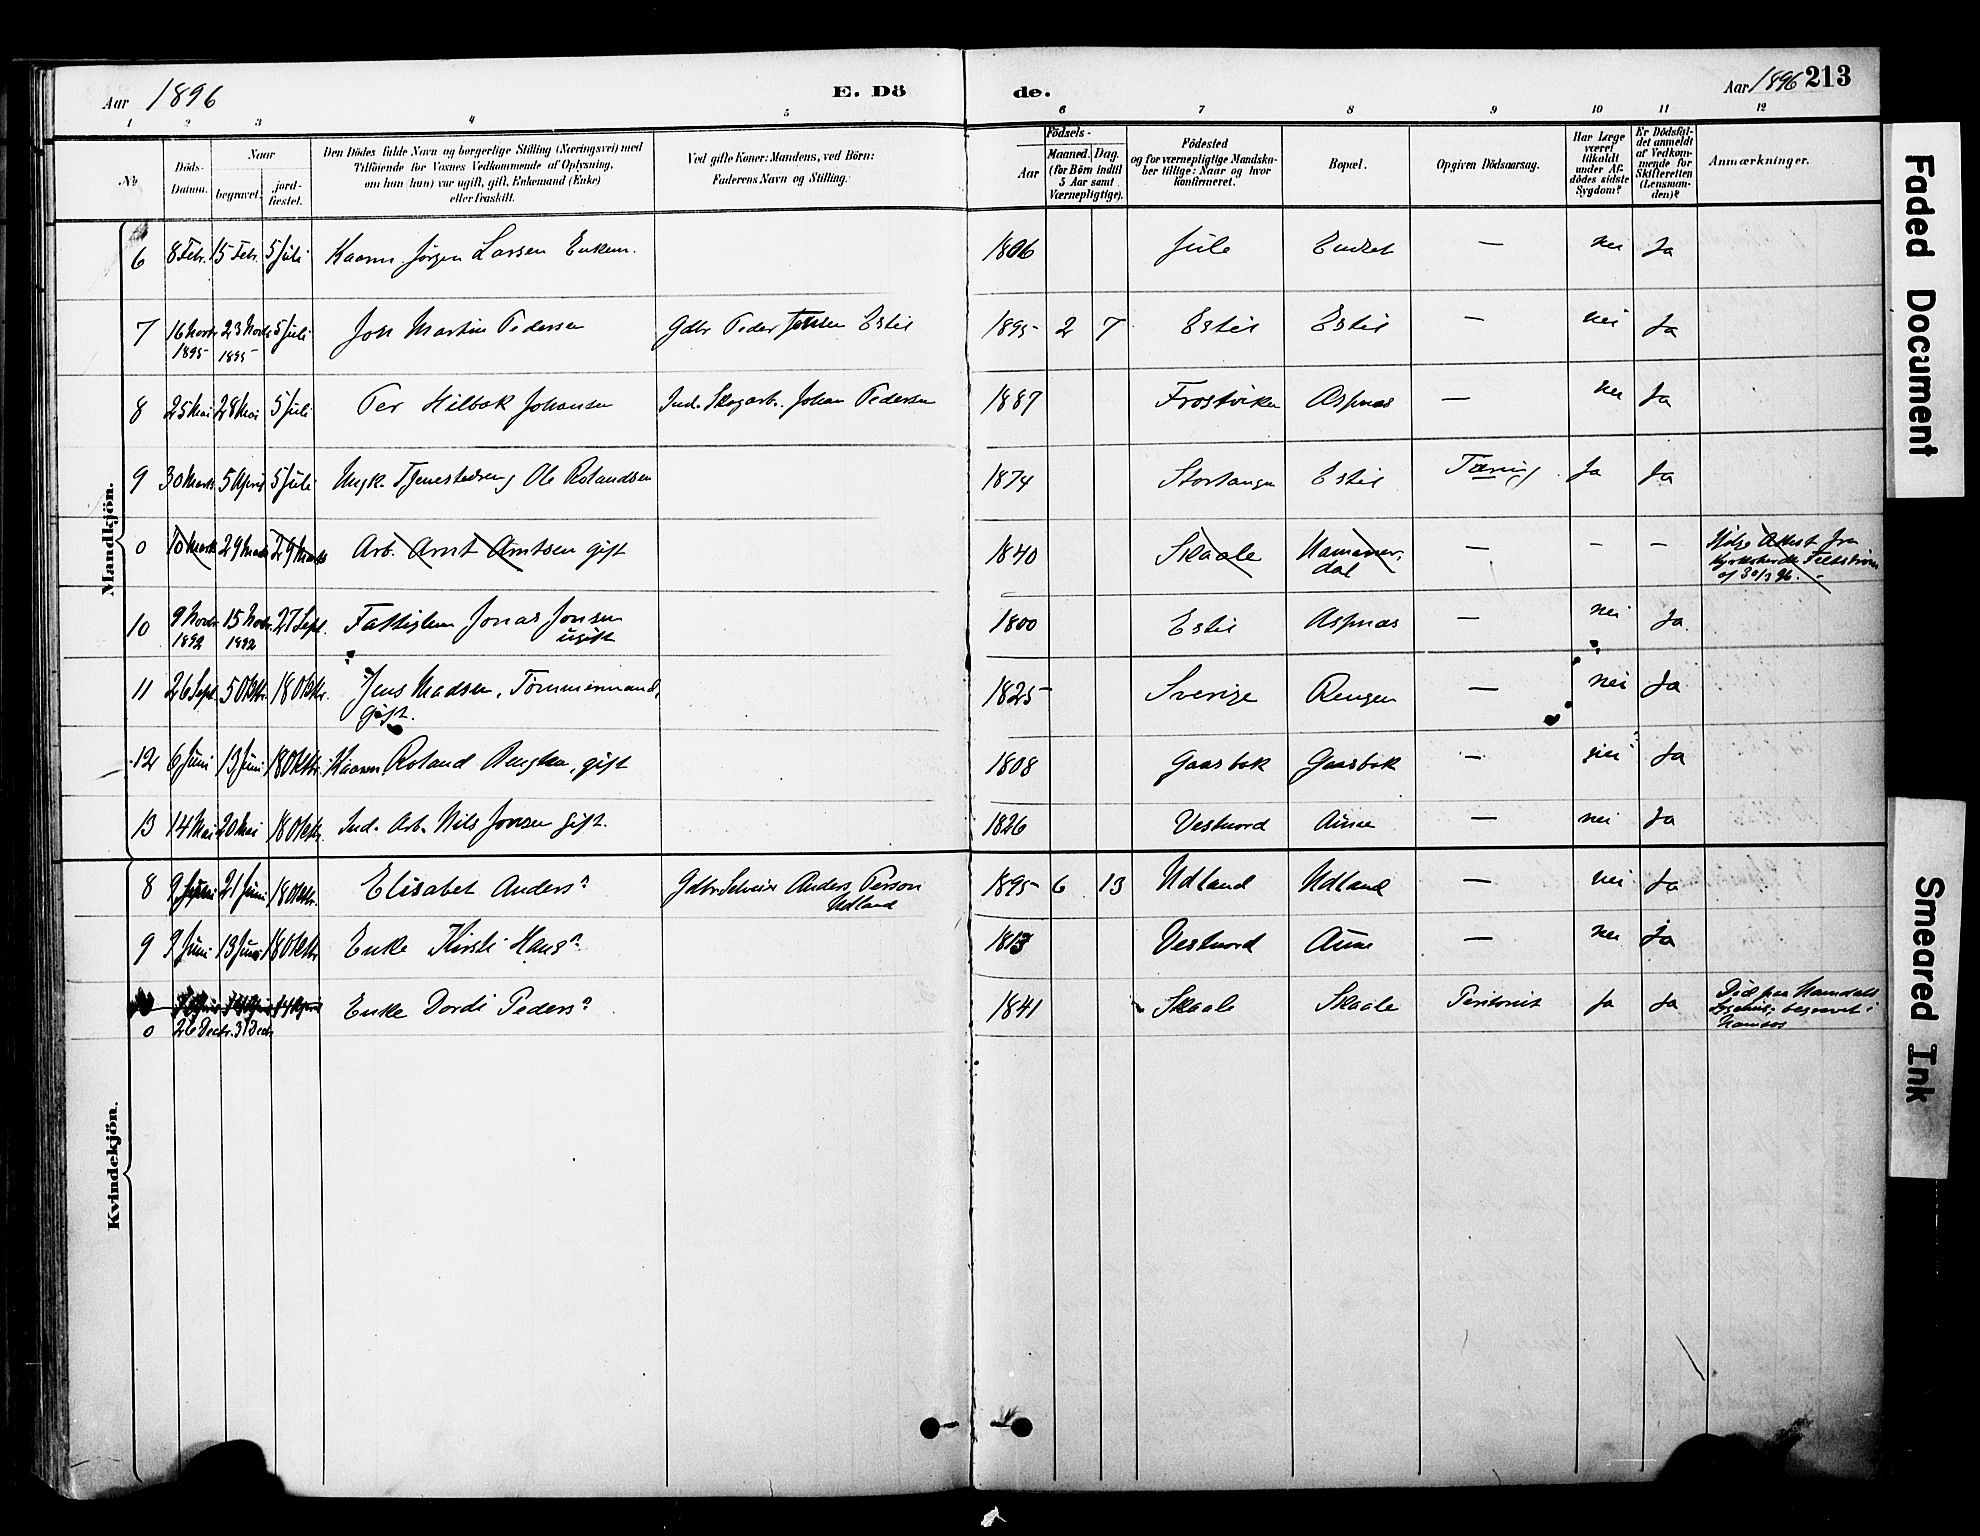 Aar 1896 E. Dö de. Aar 1896 213
1 2 3 4 5 6 7 8 9 10 11 12
No. Döds-Datum. Naar begravet. jord-fæstet. Den Dödes fulde Navn og borgerlige Stilling (Næringsvei) med Tilföiende for Voxnes Vedkommende af Oplysning, om han (hun) var ugift, gift, Enkemand (Enke) eller fraskilt. Ved gifte Koner: Mandens, ved Börn: Faderens Navn og Stilling. Födsels- Aar Maaned. Dag. (for Börn indtil 5 Aar samt Værnepligtige). Födested og for værnepligtige Mandskaber tillige: Naar og hvor konfirmeret. Bopæl. Opgiven Dödsaarsag. Har Læge været tilkaldt under Afdödes sidste Sygdom? Er Dödsfaldet anmeldt af Vedkommende for Skifteretten (Lensmanden)? Anmærkninger.
Mandkjön.
6 8 Febr. 15 Febr. 5 Juli Kaarm. Jörgen Larsen Enkem. 1806 Jule Endset — nei Ja
7 16 Novbr 1895 23 Novbr 1895 5 Juli Jon Martin Pedersen Gdbr Peder Jonsen Estil 1895 2 7 Estil Estil — nei Ja
8 25 Mai 28 Mai 5 Juli Per Hilbok Johansen Ind. Skogarb. Johan Pedersen 1887 Frostviken Aspnæs — nei Ja
9 30 Marts 5 April 5 Juli Ungk. Tjenestedreng Ole Rolandsen 1874 Stortangen Estil Tæring Ja Ja
0 10 Marts 29 Marts 29 Marts Arb. Arnt Arntsen gift 1840 Skaale Hammerdal — — — Ifölge Attest fra Kyrkoherde af 30/3 96.
10 9 Novbr. 1892 15 Novbr. 1892 27 Sept. Fattiglem Jonas Jonsen ugift 1800 Estil Aspnæs — nei Ja
11 26 Sept. 5 Oktbr. 18 Oktbr. Jens Madsen, Tömmermand, gift. 1825 Sverige Rengen — nei Ja
12 6 Juni 13 Juni 18 Oktbr. Kaarm. Roland Bengtsen, gift 1808 Gaasbak Gaasbak — nei Ja
13 14 Mai 20 Mai 18 Oktbr. Ind. Arb. Nils Jonsen gift. 1826 Vestnord Aune — nei Ja
Kvindekjön.
8 9 Juni 21 Juni 18 Oktbr. Elisabet Andersn Gdbr Selveier Anders Person Udland 1895 6 13 Udland Udland — nei Ja
9 9 Juni 13 Juni 18 Oktbr Enke Kirsti Hansn 1813 Vestnord Aune — nei Ja
0 26 Decbr. 31 Decbr. Enke Dordi Pedersn 1841 Skaale Skaale Peritonit Ja Ja Död paa Namdals Sygehus; begravet i Namsos
Faded Document
Smeared Ink